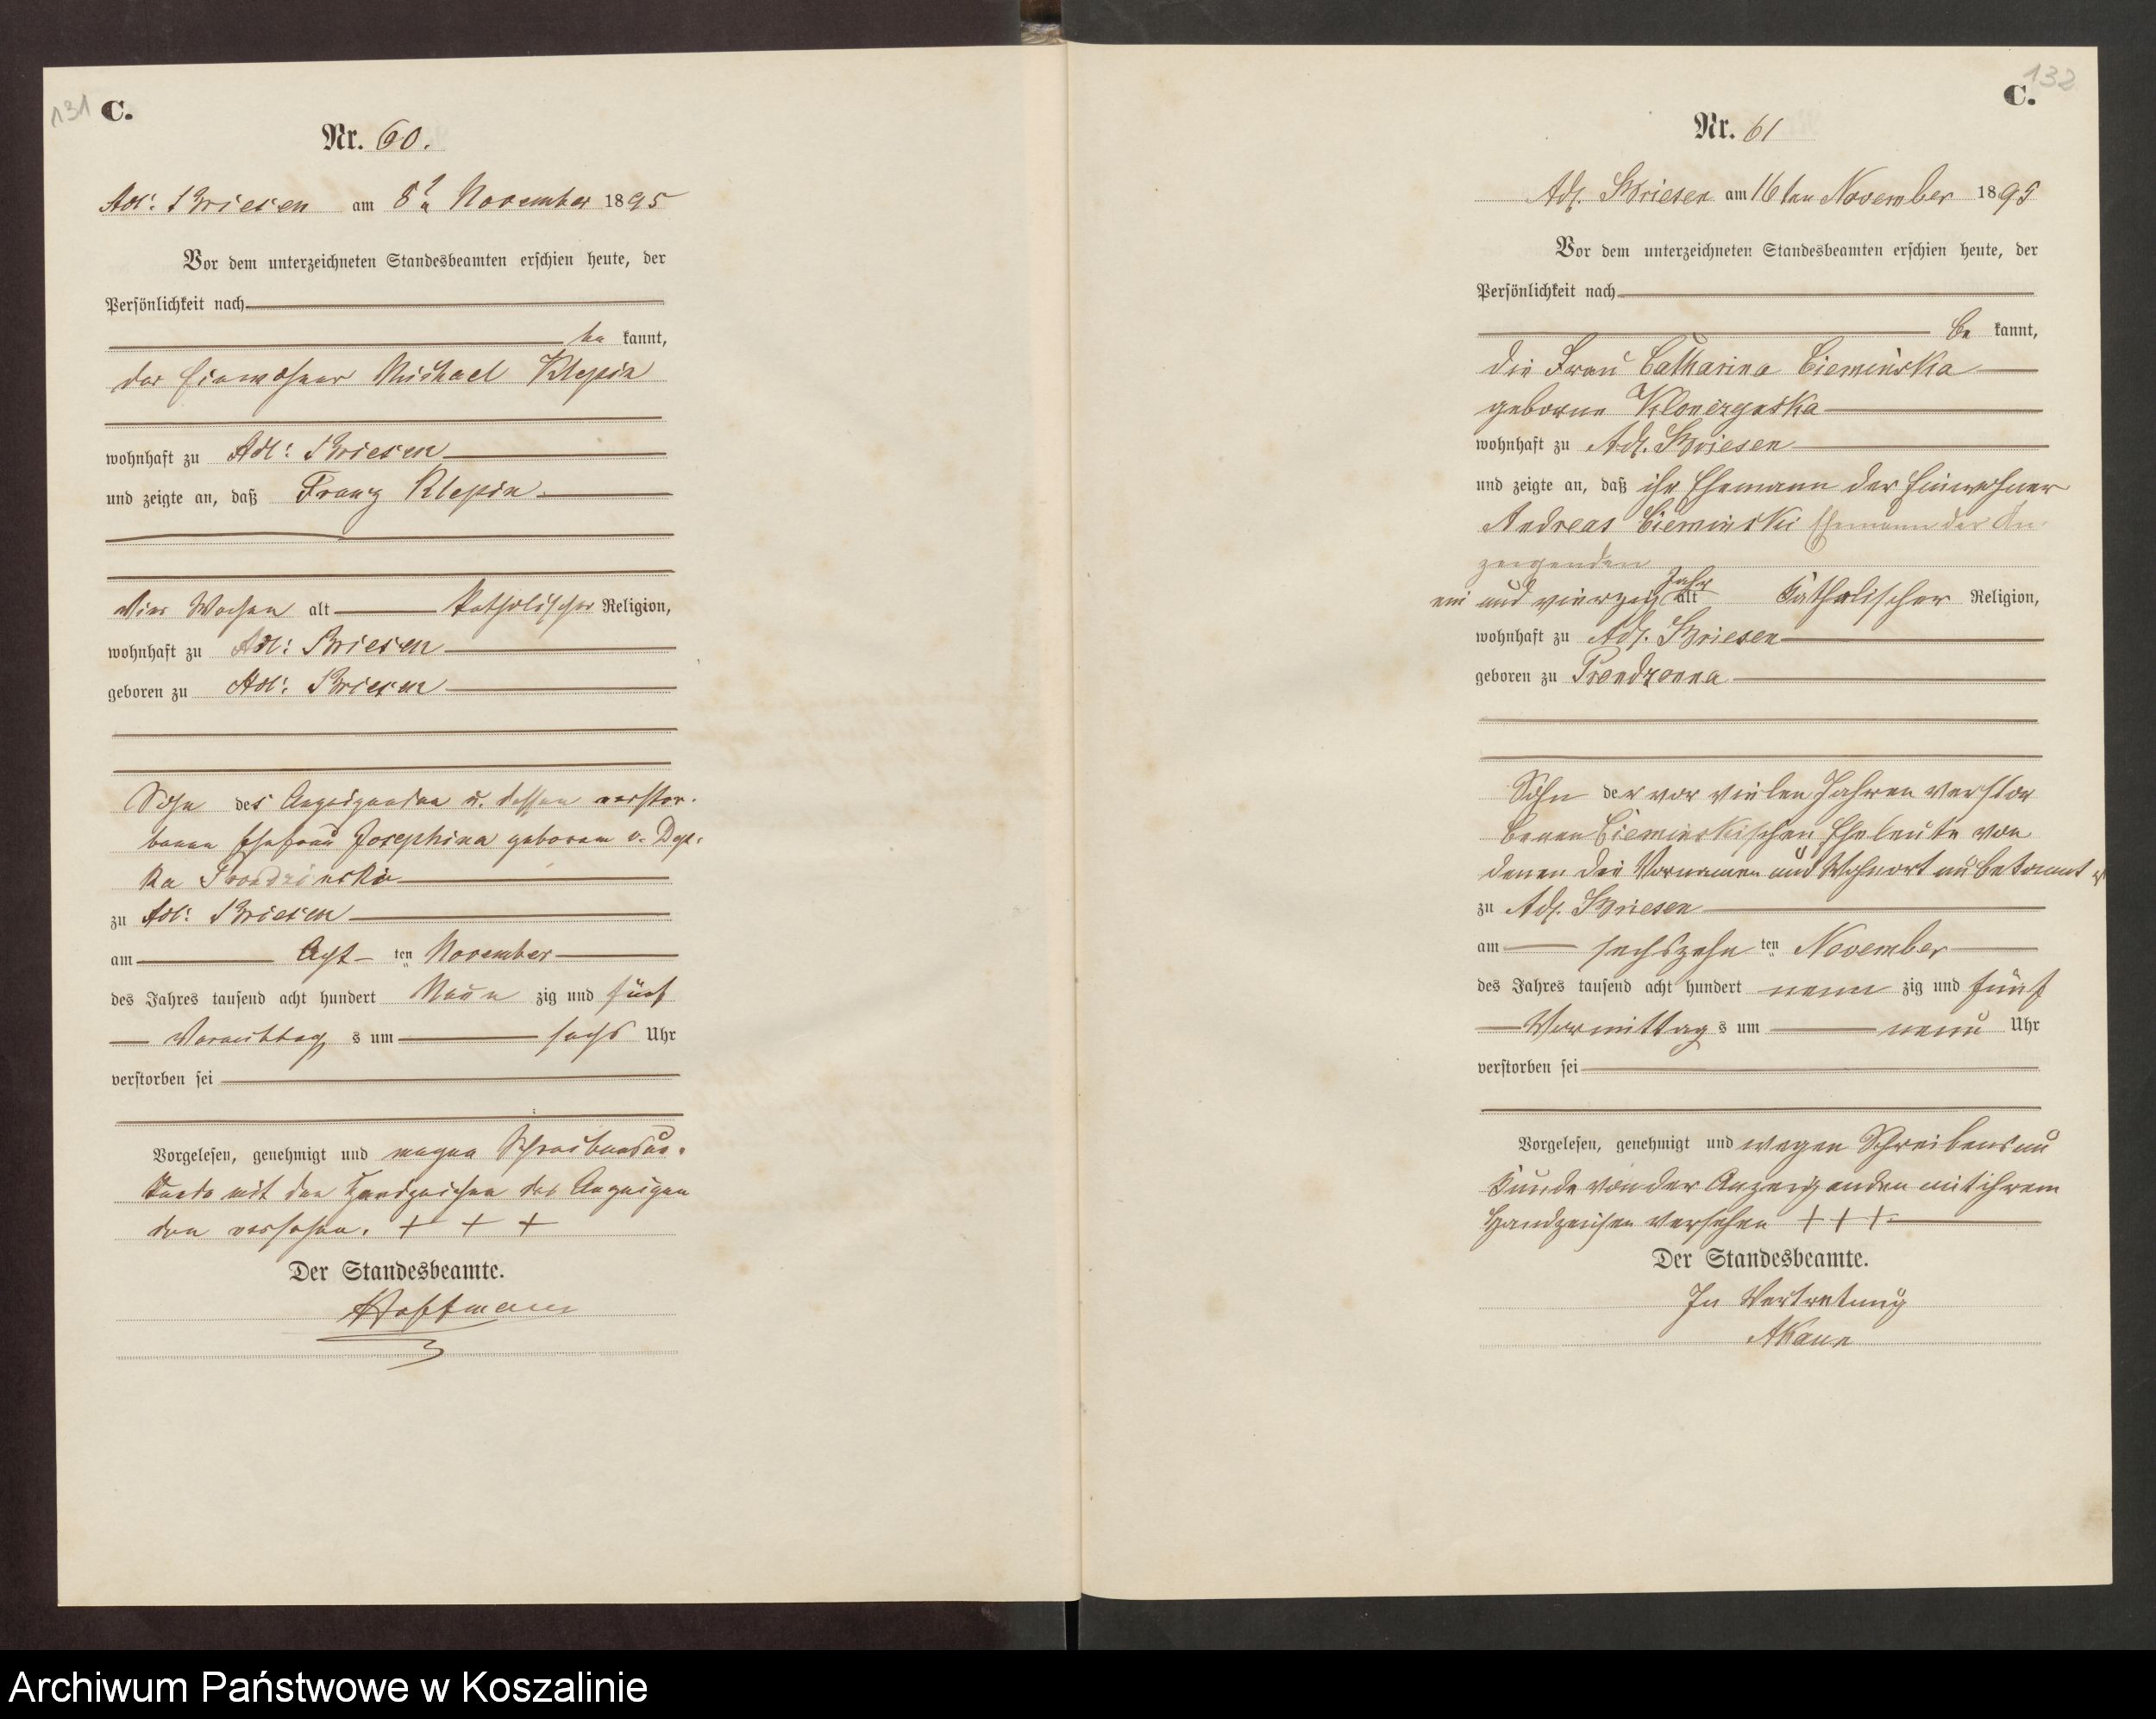 131 C.
Nr. 60.
Adl: Briesen am 8t November 1895
Vor dem unterzeichneten Standesbeamten erschien heute, der
Persönlichkeit nach
be kannt,
der Einwohner Michael Klepin
wohnhaft zu Adl: Briesen
und zeigte an, daß Franz Klepin
vier Wochen alt katholischer Religion,
wohnhaft zu Adl: Briesen
geboren zu Adl: Briesen
Sohn des Anzeigenden u. dessen verstor-
benen Ehefrau Josephina geborene v. Dep-
ka
zu Adl: Briesen
am Acht ten November
des Jahres tausend acht hundert Neun zig und fünf
Vormittag s um sechs Uhr
verstorben sei
Vorgelesen, genehmigt und wegen Schreibensun-
kunde mit den Handzeichen des Anzeigen
den versehen. + + +
Der Standesbeamte.
Hoffmann
132
C.
Nr. 61
Adl. Briesen am 16ten November 1895
Vor dem unterzeichneten Standesbeamten erschien heute, der
Persönlichkeit nach
be kannt,
die Frau Catharina Cieminska
geborne
wohnhaft zu Adl. Briesen
und zeigte an, daß ihr Ehemann der Einwohner
Andreas Cieminski Ehemann der An-
zeigenden
ein und vierzig Jahr alt katholischer Religion,
wohnhaft zu Adl. Briesen
geboren zu Prondzonna
Sohn der vor vielen Jahren verstor
benen Cieminskischen Eheleute von
denen die Vornamen und Wohnort unbekannt
zu Adl. Briesen
am sechszehn ten November
des Jahres tausend acht hundert neun zig und fünf
Vormittag s um neun Uhr
verstorben sei
Vorgelesen, genehmigt und wegen Schreibensun
kunde von der Anzeigenden mit ihrem
Handzeichen versehen + + +
Der Standesbeamte.
In Vertretung
Archiwum Państwowe w Koszalinie